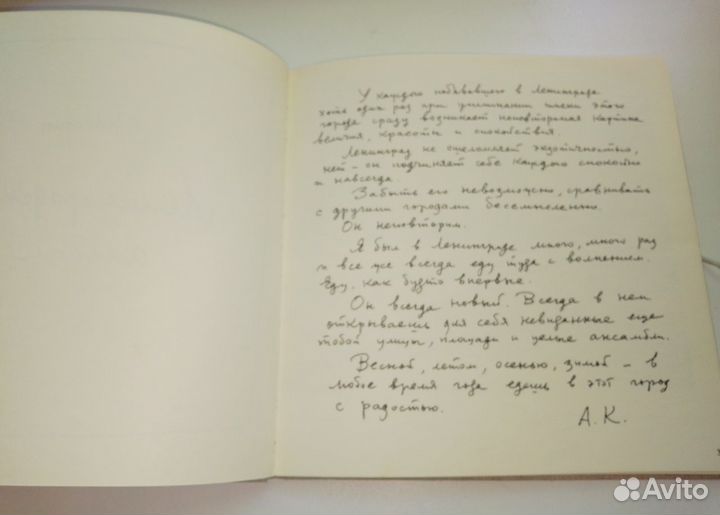 У каждого побывавшего в Ленинграде
хотя один раз при упоминании имени этого
города сразу возникает неповторимая картина
величия, красоты и спокойствия.
Ленинград не ошеломляет экзотичностью,
нет – он подчиняет себе каждого спокойно
и навсегда.
Забыть его невозможно, сравнивать
с другими городами бессмысленно.
Он неповторим.
Я был в Ленинграде много, много раз
и все же всегда еду туда с волнением.
Еду, как будто впервые.
Он всегда новый. Всегда в нем
открываешь для себя невиданные еще
тобой улицы, площади и целые ансамбли.
Весной, летом, осенью, зимой – в
любое время года едешь в этот город
с радостью.
А.К.
Avito